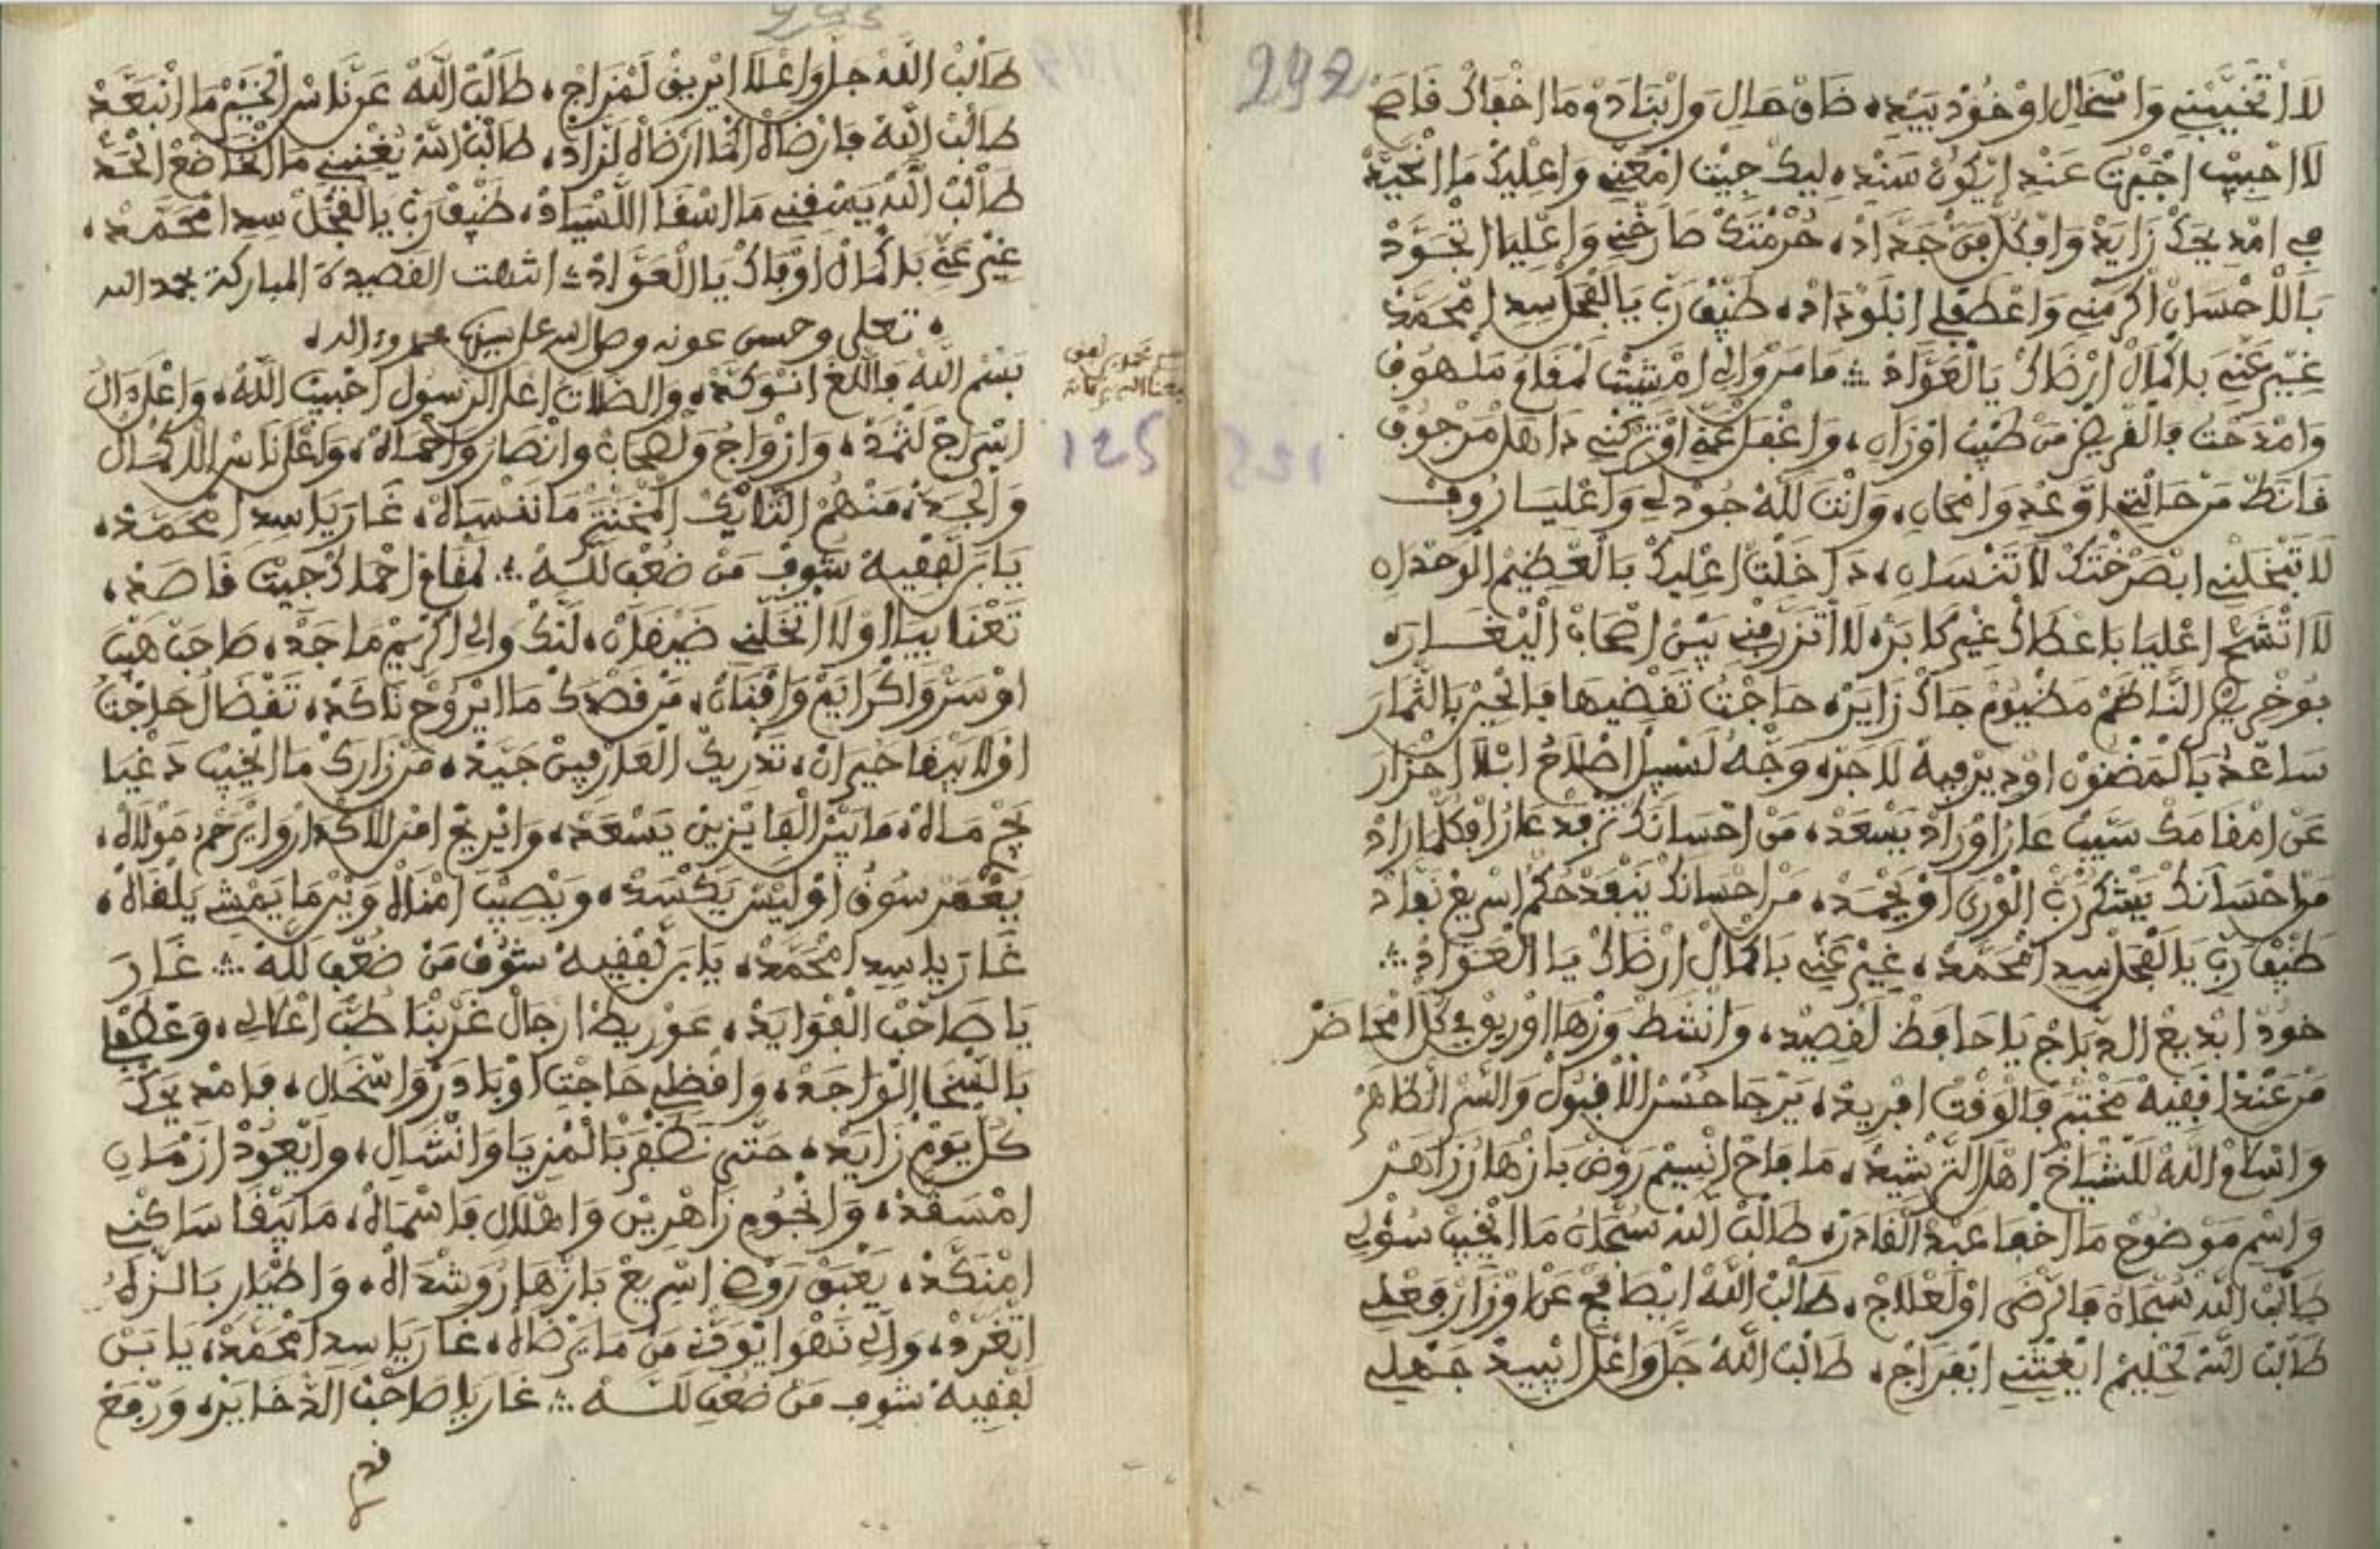 292
لَا اتْخَيَّبْنِي وَاسْخَالِ اوْخُوذْ بِيَدِ، ضَاقْ هَالِ وَابْنَادَمْ وَمَا اخْفَاكْ قَاصَحْ
لَا احْبِيبْ اجْبَرْتْ عَنْدِ ايْكُونْ سَنْدِ، لِيكْ جِيتْ امْعَنِّي وَاعْلِيكْ مَا انْحَيَّدْ
فِي امْدِيحَكْ زَايَدْ وَافْكُلْ فَنْ جَدَّادْ، حُرْمْتَكْ صَارْخْنِي وَاعْلِيَا اتْجَوَّدْ
بَالَّلاحْسَانْ اكْرَمْنِي وَاعْطَفْلِي ابْلَوْدَادْ، طَيْفْ رَبِّ يَالْفَحْلْ سِدِ امْحَمَّدْ
غِيرْ عَنِّي بَكْمَالْ ارْضَاكْ يَالْعَوَّادْ ∴ مَا مَرْوَالِي امْشِيتْ لَمْقَامُ مَلْهُوفْ
وَامْدَحْتُ بَالْقْرِيضْ مَنْ طِيبْ اوْزَانِ، وَاغْفَلْ عَنِّي اوْتَرْكْنِي دَاهَلْ مَرْجُوفْ
قَانَطْ مَرْحَالْتِي اوَّعْدِ وَامْحَانِ، وَانْتَ لَلَّهْ جُودْ لِي وَاعْلِيَا رُوفْ
لَا تَبْخَلْنِي ابْصَرْخْتَكْ لَا تَنْسَانِ، دَاخَلْتْ اعْلِيكْ بَالْعْظِيمْ الْوَحْدَانِ
لَا اتْشَحْ اعْلِيَا بَاعْطَاكْ غِيرْ كَابَرْ، لَا اتْزَرَّفْنِي بِينْ اصْحَابْ الْيْغَارَ
بُوخْرِيصْ النَّاظَمْ مَضْيُومْ جَاكْ زَايَرْ، حَاجْتُ تَقْضِيهَا بَالْخِيرْ بَالتّْمَارَ
سَاعْدُ بَالْمَضْنُونْ اوْدِيرْ فِيهْ لَاجَرْ، وَجْهُ لَسْبِيلْ اصْلَاحُ ابْلَا احْزَارَ
عَنْ امْقَامَكْ سَيَّبْ عَارُ اوْرَادْ يَسْعَدْ، مَنْ احْسَانَكْ تَرْفَدْ عَارُ افْكُلْمَارَادْ
مَنْ احْسَانَكْ يَشْكُرْ رَبّْ الْوْرَى اوْيَحْمَدْ، مَنْ احْسَانَكْ يَنْفَدْ حُكْمْ اسْرِيعْ نَفَّادْ
طَيْفْ رَبِّ يَالْفَحْلْ سِدِ امْحَمَّدْ، غِيرْ عَنِّي بَاكْمَالْ ارْضَاكْ يَا الْعَوَّادْ ∴
خُوذْ ابْدِيعْ الدِّبَاجْ يَا حَافَظْ لَقْصِيدْ، وَانْشَطْ وَزْهَا اوْرِيقْ فِي كُلْ امْحَاضَرْ
مَنْ عَنْدْ افْقِيهْ مَحْتَمْ فَالْوَقْتْ افْرِيدْ، يَرْجَا حُسْنْ الْاقْبُولْ وَالسَّرْ الظَّاهَرْ
وَاسْلَامْ اللَّهْ لَلشّْيَاخْ اهْلْ التَّرْشِيدْ، مَا فَاحْ انْسِيمْ رَوْضْ بَازْهَارُ زَاهَرْ
وَاسْمِ مَوْضُوحْ مَا اخْفَا عَبْدْ الْقَادَرْ، طَالَبْ اللَّهْ سُبْحَانُ مَا ايْخِيبْ سُولِي
طَالَبْ اللَّهْ سُبْحَانُ فَالرّْضَى اوْلَعْلَاجْ، طَالَبْ اللَّهْ ايْصَافَحْ عَنْ اوْزَارْ فَعْلِي
طَالَبْ اللَّهْ لَحْلِيمْ ايْغِيتْنِي ابْفَرَاجْ، طَالَبْ اللَّهْ جَلّْ وَاعْلَا ايْبِيدْ جَهْلِي
طَالَبْ اللَّهْ جلّ وَاعْلَا ايْرِيقْ لَمْزَاجْ، طَالَبْ اللَّهْ عَزّْنَا سْرْ الْخَيْرْ مَا انْبَعَّدْ
طَالَبْ اللَّهْ فَارْضَاهْ انَّا ارْضَاهْ لَنْزَادْ، طَالَبْ اللَّهْ يُغْنِينِي مَا انْخَاضَعْ الْحَدّْ
طَالَبْ اللَّهْ يَسْقِينِي مَا اسْقَا اللَّسْيَادْ، طَيْفْ رَبِّ يَالْفَحْلْ سِدِ امْحَمَّدْ،
غِيرْ عَنِّي بَاكْمَالْ اوْفَاكْ يَاالْعَوَّادْ ∴ انتهت القصيدة المباركة بحمد الله
، تعلى وحسن عونه وصل الله على سيدنا محمد وءاله،
بَسْمْ اللَّهْ فَاللّغَ انْتَوْكَدْ، وَالصّْلَاتْ اعْلَ الرَّسُولْ احْبِيبْ اللَّهْ، وَاعْلَ دَالُ
125
اسْرَاجْ لَثْمَدْ، وَازْوَاجُ وَلَصْحَابْ وَانْصَارُ وَاحْمَاهْ، وَاعْلَ نَاسْ الَّلاكْمَالْ
وَالْجَدّْ، مَنْهُمْ التَّابَكْ الْمَحْتَمْ مَا نَنْسَاهْ، غَارَ يَا سِدِ امْحَمَّدْ،
يَا بَرْ لَفْقِيهْ شُوفْ مَنْ ضُعْفِ للَّهْ ∴ لَمْقَامْ احْمَاكْ جِيتْ قَاصَدْ،
تَعْنَا بِيَا اوْلَا اتْخَلِّنِي ضَيْقَانْ، لَنَّكْ وَالِي اكْرِيمْ مَاجَدْ، صَاحَبْ هَيْبَ
اوْسَرْ وَاكْرَايَمْ وَاقْبَانْ، مَنْ قَصْدَكْ مَا ايْرُوحْ نَاكَدْ، تَقْضَا لُ حَاجْتُ
اوْلَا يَبْقَا حَيْرَانْ، تَدْرِيكْ الْعَارْفِينْ جَيَّدْ، مَنْ زَارَكْ مَا ايْخِيبْ دَغْيَا
نَجْمْ مَاهْ، مَا بَيْنْ الْفَايْزِينْ يَسْعَدْ، وَايْرِيحْ امْنْ الَّلاكْدَارُ وَايْرَحْمْ مَوْلَاهْ،
يَعْمَرْ سُوقُ اوْلَيْسْ يَكْسَدْ، وَيْصِيبْ امْنَاهْ وَيْنْ مَا يَمْشِي يَلْقَاهْ،
غَارَ يَا سِدِ امْحَمَّدْ، يَا بَرْ لَفْقِيهْ شُوفْ مَنْ ضُعْفِ للَّهْ ∴ غَارَ
يَا صَاحَبْ الْفْوَايَدْ، عَوْرِيطْ ارْجَالْ غَرْبْنَا طَبّْ اعْلَالِي، وَعْطَفْلِي
بَالسّْخَا الْوَاجَدْ، وَاقْضِي حَاجْتِي اوْبَادَرْ وَاسْخَالِ، فَامْدِيحَكْ
كُلّْ يَوْمْ زَايَدْ، حَتَّى نَظْفَرْ بَالْمْزِيَا وَانْشَالِ، وَايْعُودْ ازْمَانِ
امْسَقَّدْ، وَانْجُومِ زَاهْرِينْ وَاهْلَالِ فَاسْمَاهْ، مَا يَبْقَا سَاكْنِي
امْنَكَّدْ، يَعْبَقْ رَوْضِ اسْرِيعْ بَازْهَارُ وَشْدَاهْ، وَاطْيَارِ بَالنّْزَاهْ
اتْغَرَّدْ، وَالِّي نَهْوَا ايْوَفِّ مَنْ مَا يَرْضَاهْ، غَارَ يَا سِدِ امْحَمَّدْ، يَا بَرْ
لَفْقِيهْ شُوفْ مَنْ ضُعْفِ للَّهْ ∴ غَارَ يَا صَاحَبْ الدّْخَايَرْ، وَرْفَعْ